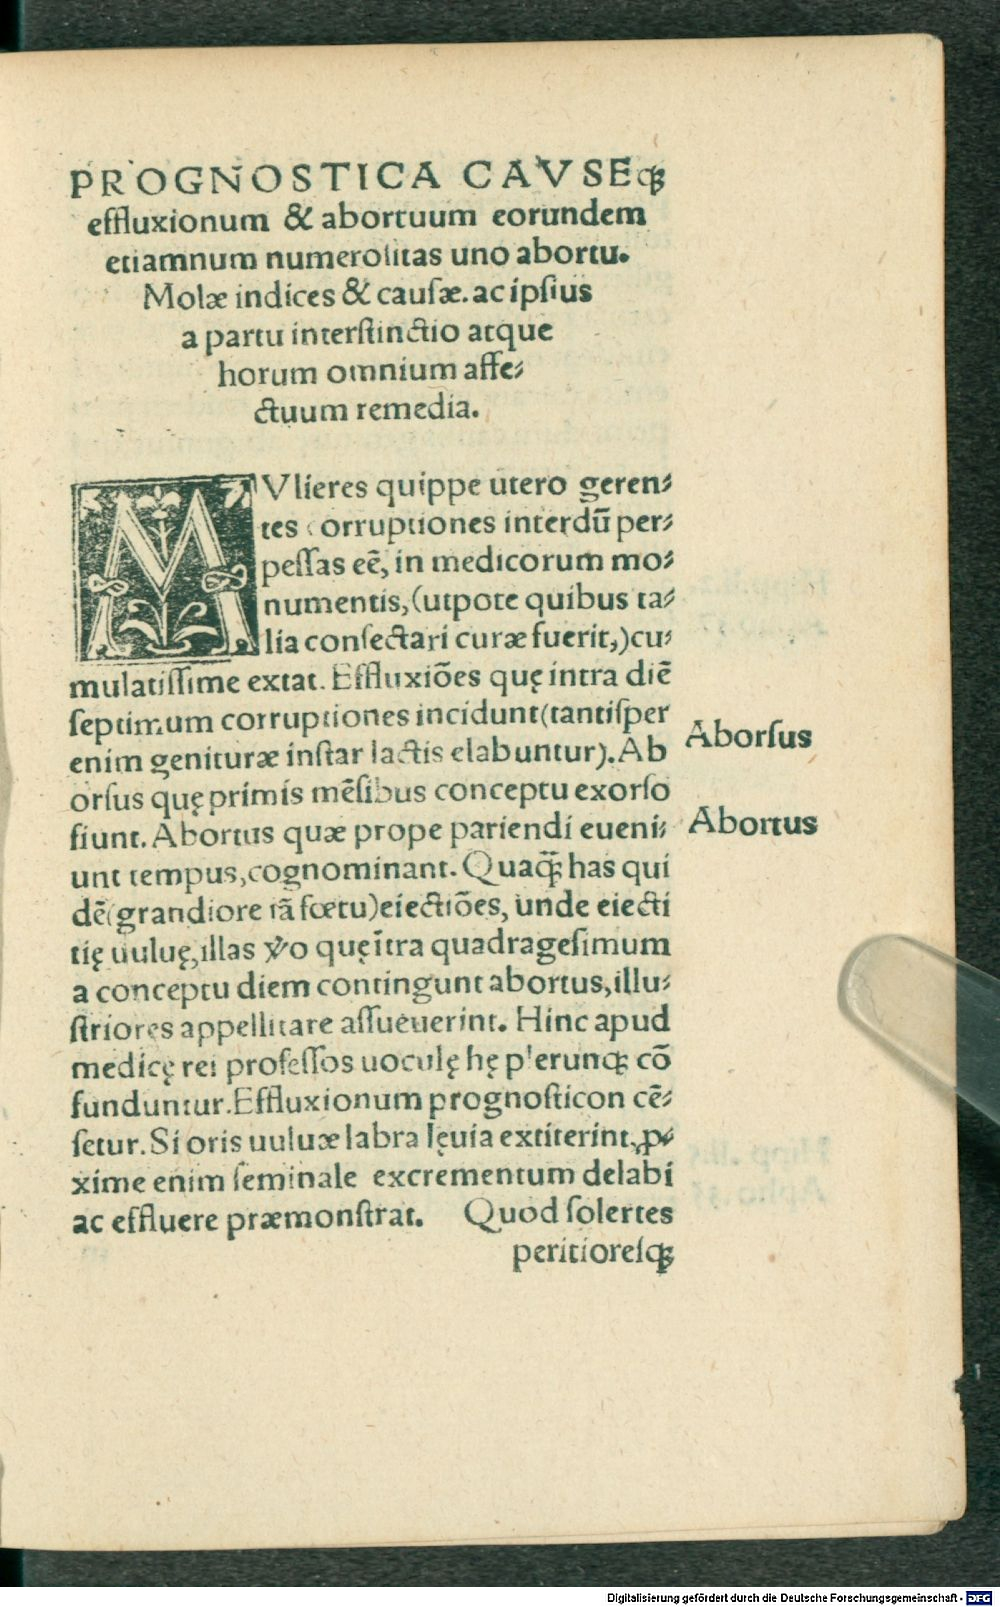 PROGNOSTICA CAVSEqꝫ
effluxionum & abortuum eorundem
etiamnum numerositas uno abortu.
Molæ indices & causæ. ac ipsius
a partu interstinctio atque
horum omnium affe⸗
ctuum remedia.
MVlieres quippe utero geren⸗
tes corruptiones interdū per⸗
pessas eē, in medicorum mo⸗
numentis, (utpote quibus ta⸗
lia consectari curæ fuerit,) cu⸗
mulatissime extat. Effluxiōes quę intra diē
septimum corruptiones incidunt (tantisper
enim genituræ instar lactis elabuntur). Ab
orsus quę primis mēsibus conceptu exorso
fiunt. Abortus quæ prope pariendi eueni⸗
unt tempus, cognominant. Quaq̃ꝫ has qui
dē (grandiore iā fœtu) eiectiōes, unde eiecti
tię uuluę, illas ꝟo quę ītra quadragesimum
a conceptu diem contingunt abortus, illu⸗
striores appellitare assueuerint. Hinc apud
medicę rei professos uoculę hę plerunqꝫ cō
funduntur. Effluxionum prognosticon cē⸗
setur. Si oris uuluæ labra lęuia extiterint, ꝓ⸗
xime enim seminale excrementum delabi
ac effluere præmonstrat. Quod solertes
peritioresqꝫ
Aborsus
Abortus
Digitalisierung gefördert durch die Deutsche Forschungsgemeinschaft - DFG